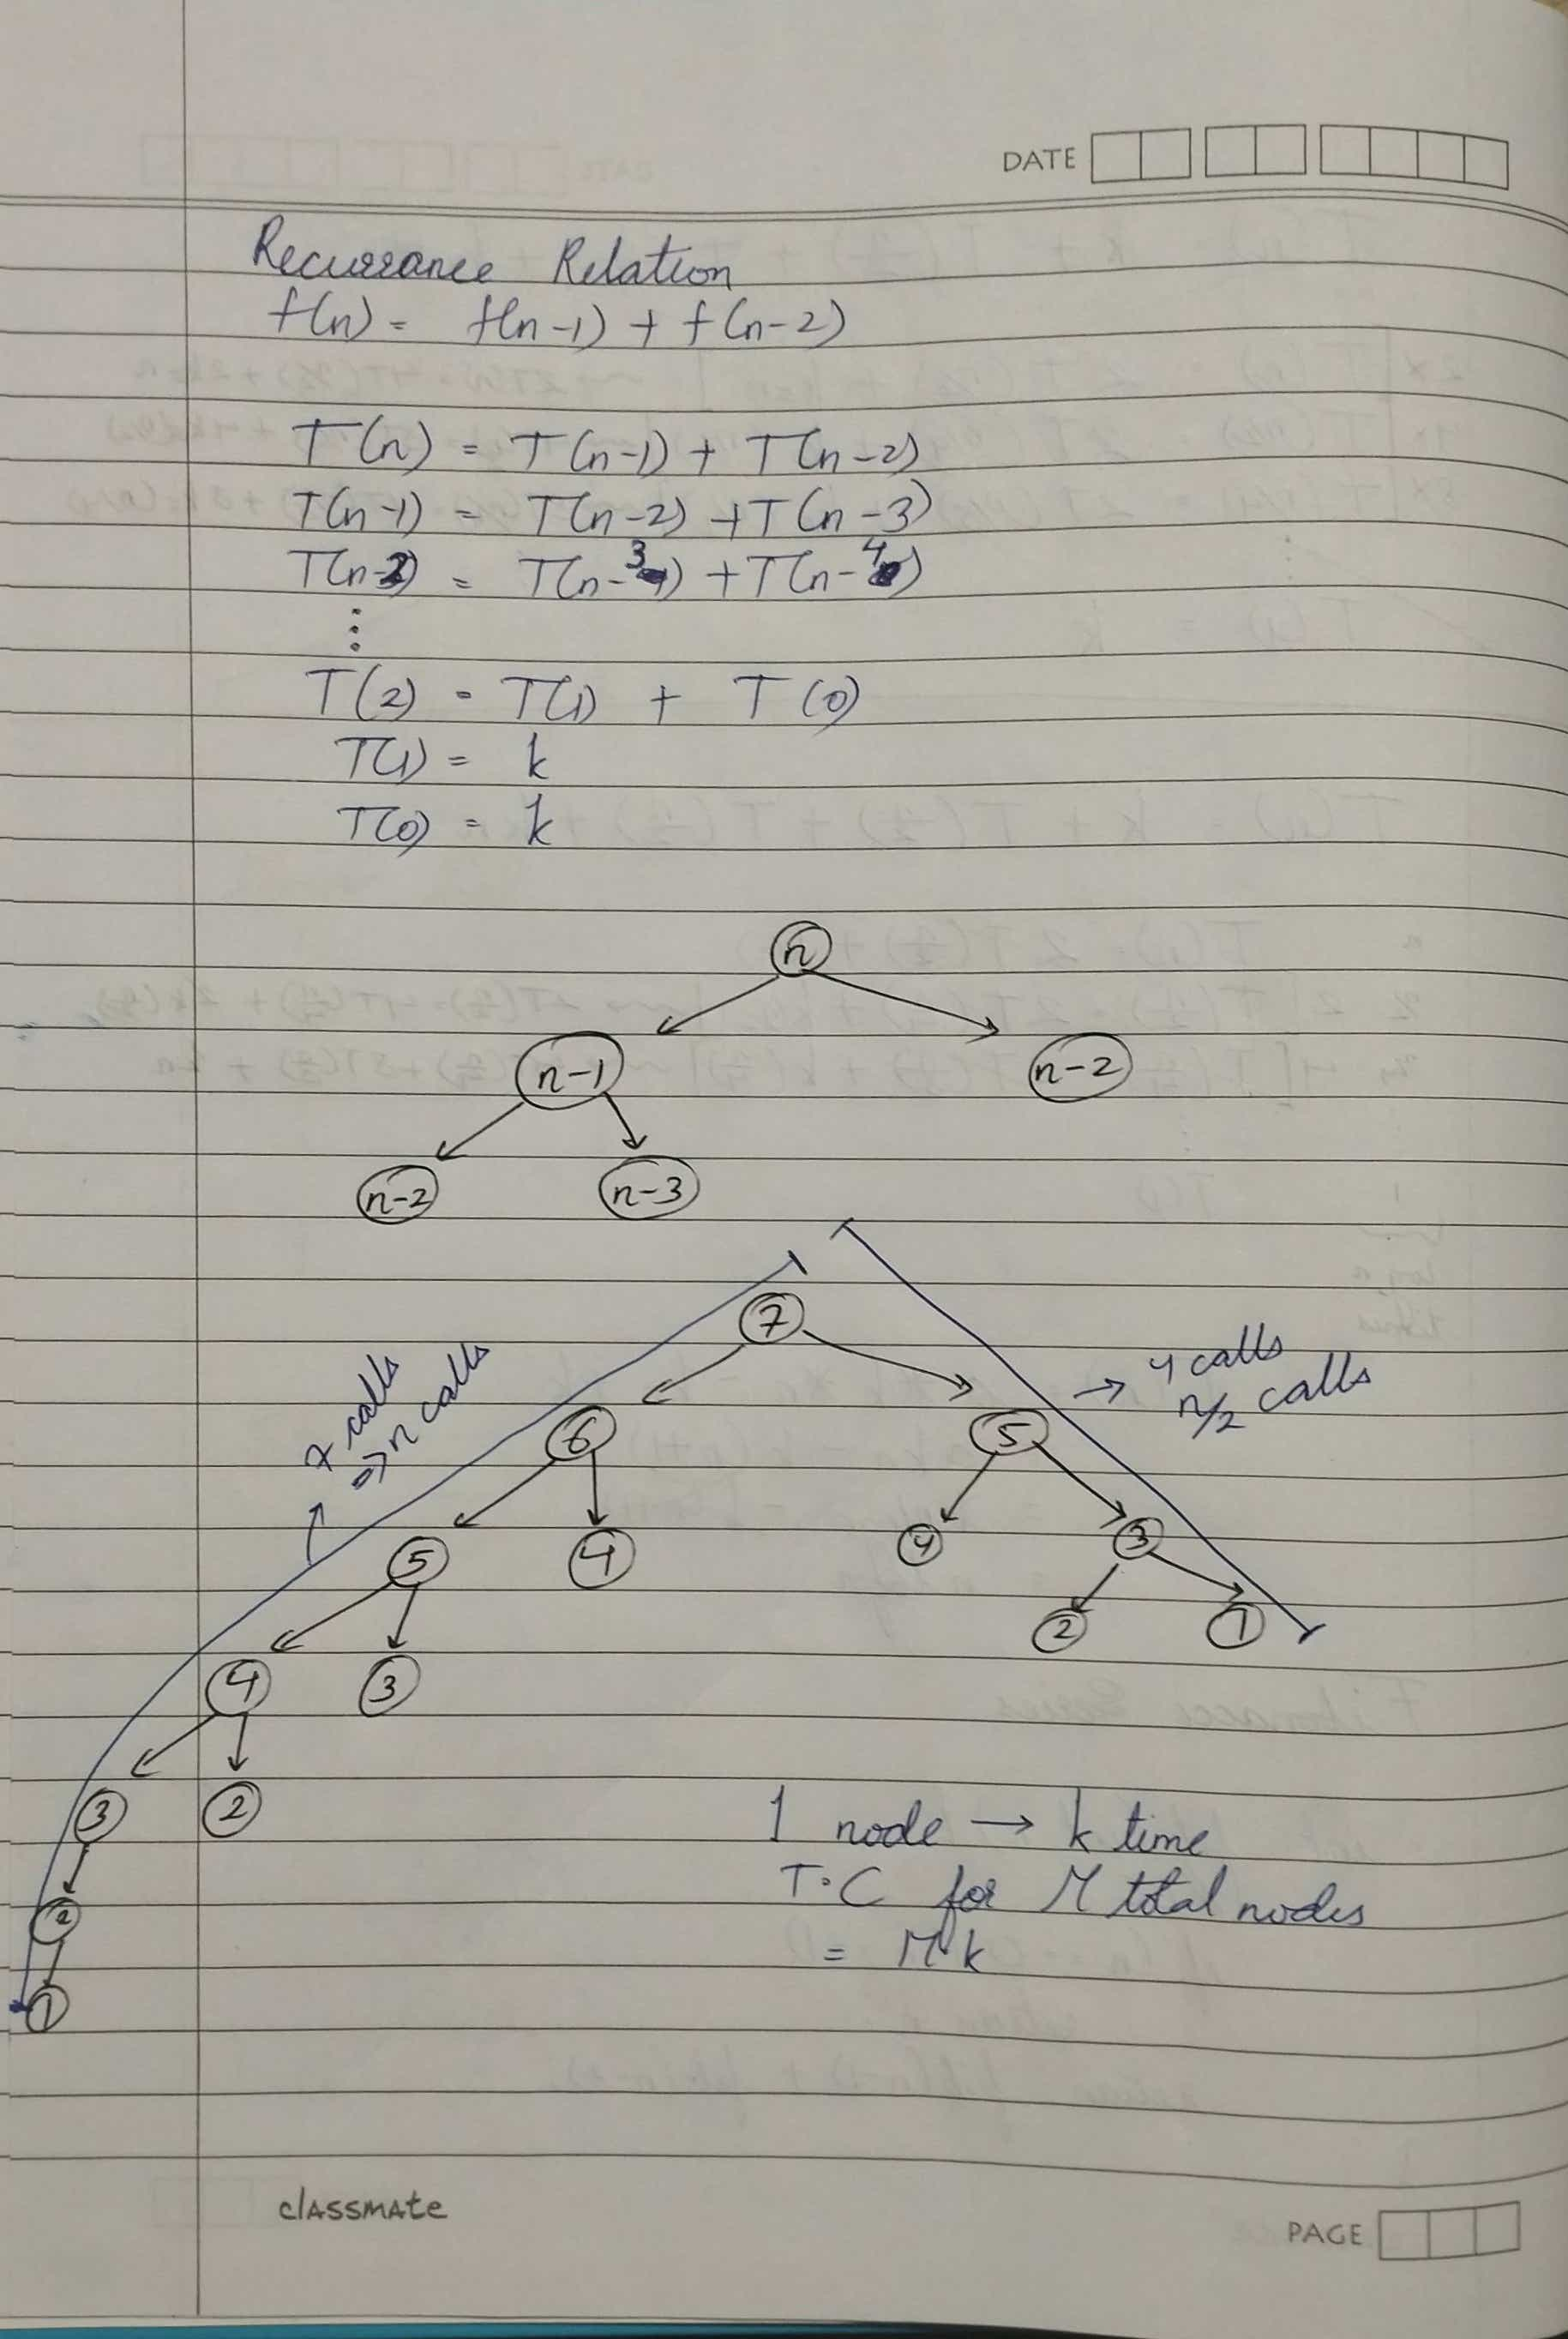 DATE
Recurrance Relation
f(n) = f(n-1) + f(n-2)
T(n) = T(n-1) + T(n-2)
T(n-1) = T(n-2) + T(n-3)
T(n-2) = T(n-3) + T(n-4)
⋮
T(2) = T(1) + T(0)
T(1) = k
T(0) = k
n
n-1 n-2
n-2 n-3
7
7 calls
⇒ n calls
→ 4 calls
n/2 calls
6 5
5 4 4 3
2 1
4 3
3 2
2
1
1 node → k time
T.C for M total nodes
= M k
classmate
PAGE